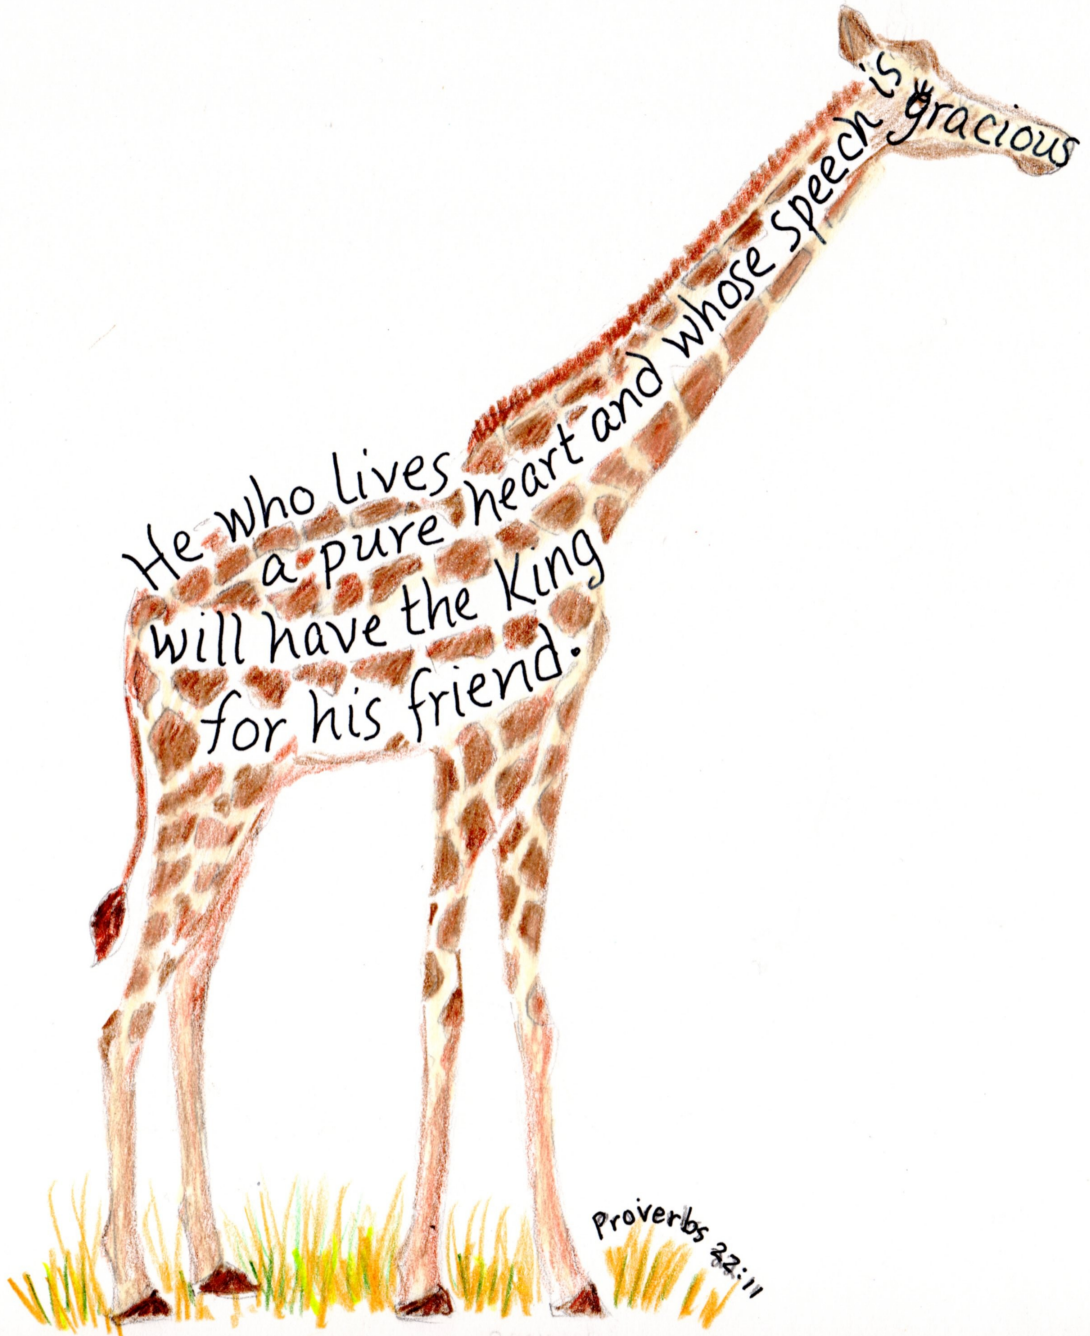 He who lives
a pure heart and whose speech is gracious
will have the King
for his friend.
Proverbs 22:11